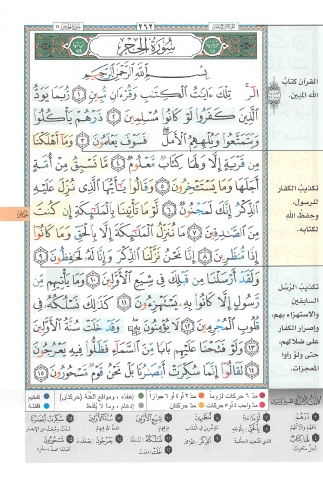 ٢٦٢
سُورَةُ الْحِجْرِ
بِسْمِ اللَّهِ الرَّحْمَٰنِ الرَّحِيمِ
الٓر تِلْكَ ءَايَٰتُ الْكِتَٰبِ وَقُرْءَانٍ مُّبِينٍ ١ رُّبَمَا يَوَدُّ
الَّذِينَ كَفَرُوا لَوْ كَانُوا مُسْلِمِينَ ٢ ذَرْهُمْ يَأْكُلُوا
وَيَتَمَتَّعُوا وَيُلْهِهِمُ الْأَمَلُ فَسَوْفَ يَعْلَمُونَ ٣ وَمَا أَهْلَكْنَا
مِن قَرْيَةٍ إِلَّا وَلَهَا كِتَابٌ مَّعْلُومٌ ٤ مَّا تَسْبِقُ مِنْ أُمَّةٍ
أَجَلَهَا وَمَا يَسْتَـْٔخِرُونَ ٥ وَقَالُوا يَٰأَيُّهَا الَّذِي نُزِّلَ عَلَيْهِ
الذِّكْرُ إِنَّكَ لَمَجْنُونٌ ٦ لَّوْ مَا تَأْتِينَا بِالْمَلَٰئِكَةِ إِن كُنتَ
مِنَ الصَّٰدِقِينَ ٧ مَا نُنَزِّلُ الْمَلَٰئِكَةَ إِلَّا بِالْحَقِّ وَمَا كَانُوا
إِذًا مُّنظَرِينَ ٨ إِنَّا نَحْنُ نَزَّلْنَا الذِّكْرَ وَإِنَّا لَهُ لَحَٰفِظُونَ ٩
وَلَقَدْ أَرْسَلْنَا مِن قَبْلِكَ فِي شِيَعِ الْأَوَّلِينَ ١٠ وَمَا يَأْتِيهِم مِّن
رَّسُولٍ إِلَّا كَانُوا بِهِ يَسْتَهْزِءُونَ ١١ كَذَٰلِكَ نَسْلُكُهُ فِي
قُلُوبِ الْمُجْرِمِينَ ١٢ لَا يُؤْمِنُونَ بِهِ وَقَدْ خَلَتْ سُنَّةُ الْأَوَّلِينَ
١٣ وَلَوْ فَتَحْنَا عَلَيْهِم بَابًا مِّنَ السَّمَاءِ فَظَلُّوا فِيهِ يَعْرُجُونَ
١٤ لَقَالُوا إِنَّمَا سُكِّرَتْ أَبْصَٰرُنَا بَلْ نَحْنُ قَوْمٌ مَّسْحُورُونَ ١٥
القرآن كتاب
الله المبين.
تكذيب الكفار
للرسول،
وحفظ الله
لكتابه.
تكذيب الرسل
السابقين
والاستهزاء بهم،
وإصرار الكفار
على ضلالهم،
حتى ولو رأوا
المعجزات.
مدّ ٦ حركات لزوماً
مدّ ٢ أو ٤ أو ٦ جوازاً
إخفاء، ومواقع الغنة (حركتان)
تفخيم
مدّ واجب ٤ أو ٥ حركات
مدّ حركتان
إدغام، وما لا يُلفظ
قلقلة